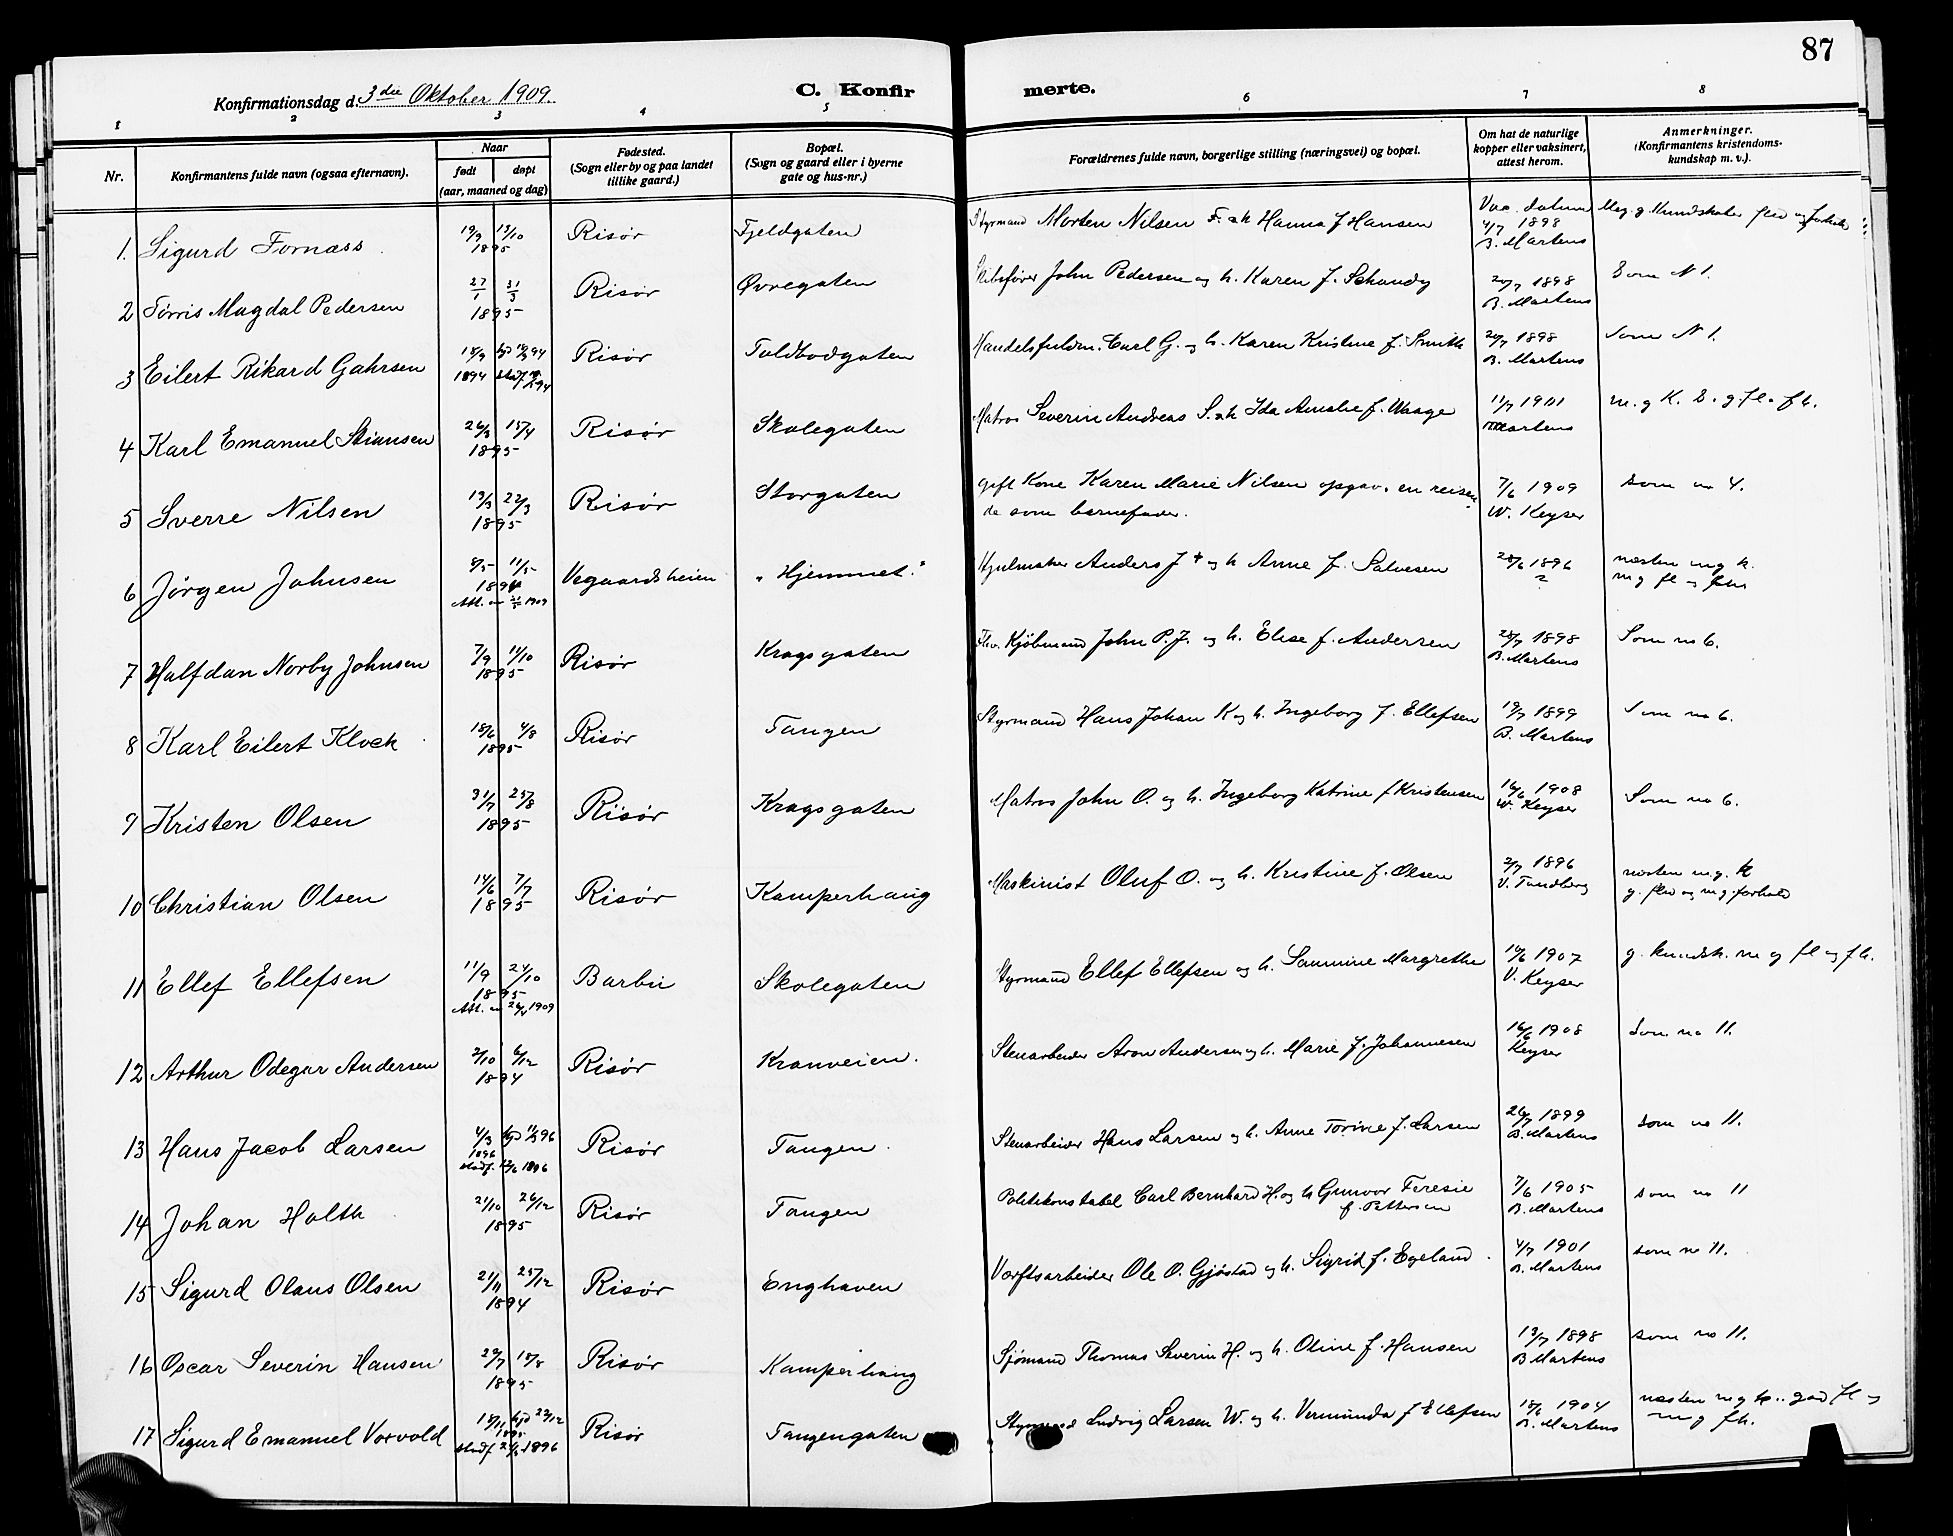 87
Konfirmationsdag d. 3die Oktober 1909.
C. Konfirmerte.
1 2 3 4 5 6 7 8
Nr.
Konfirmantens fulde navn (ogsaa efternavn).
Naar
født døpt
(aar, maaned og dag)
Fødested.
(Sogn eller by og paa landet
tillike gaard.)
Bopæl.
(Sogn og gaard eller i byerne
gate og hus-nr.)
Forældrenes fulde navn, borgerlige stilling (næringsvei) og bopæl.
Om hat de naturlige
kopper eller vaksinert,
attest herom.
Anmerkninger.
(Konfirmantens kristendoms-
kundskap m. v.).
1. Sigurd Fornæss 19/9 13/10 1895 Risør Fjeldgaten Styrmand Morten Nilsen F. og h Hanna f Hansen Vac. datum 4/7 1898 B. Martens Meg. g. Kundskaber flid og forhold
2 Tørris Magdal Pedersen 27/1 31/3 1895 Risør Øvregaten Skibsfører John Pedersen og h. Karen f. Schandy 20/7 1898 B. Martens Som N 1.
3 Eilert Rikard Gahrsen 1894 Risør Toldbodgaten Handelsfuldm. Carl G. og h. Karen Kristine f. Smith 20/7 1898 B. Martens Som N 1.
4 Karl Emanuel Stiansen 26/2 15/4 1895 Risør Skolegaten Matros Severin Andreas S. og h Ida Amalie f. Waage 11/7 1901 Martens m. g K. g fl. fh.
5 Sverre Nilsen 19/3 22/3 1895 Risør Storgaten gift Kone Karen Marie Nilsen opgav. en reisen-
de som barnefader. 7/6 1909 W. Keyser Som no 4.
6 Jørgen Johnsen 8/5 11/5 1894 1909 Vegaardsheien "Hjemmet." Hjulmaker Anders J + og h Anne f. Salvesen 28/6 1896 ? næsten m g k.
m g fl og fh
7 Halfdan Norby Johnsen 7/9 11/10 1895 Risør Kragsgaten Fhv. Kjøbmand John P. J. og h. Elise f. Andersen 28/7 1898 B. Martens Som no 6.
8 Karl Eilert Klock 18/6 4/8 1895 Risør Tangen Styrmand Hans Johan K og h. Ingeborg f. Ellefsen 19/7 1899 B. Martens Som no 6.
9 Kristen Olsen 31/7 25/8 1895 Risør Kragsgaten Matros John O. og h. Ingeborg Katrine f Kristensen 16/6 1908 W. Keyser Som no 6.
10 Christian Olsen 14/6 7/7 1895 Risør Kamperhaug Maskinist Oluf O. og h. Kristine f. Olsen 2/7 1896 V. Tandberg næsten m. g. k
g. flid og m g forhold
11 Ellef Ellefsen 11/9 24/10 1895 1909 Barbu Skolegaten Styrmand Ellef Ellefsen og h. Samine Margrethe 19/6 1907 V. Keyser g. kundsk. m g fl og fh.
12 Arthur Odegar Andersen 2/10 6/12 1894 Risør Kranveien. Stenarbeider Aron Andersen og h. Marie f. Johannesen 16/6 1908 Keyser Som no 11.
13 Hans Jacob Larsen 4/3 1896 Risør Tangen. Stenarbeider Hans Larsen og h. Anne Torine f. Larsen 26/7 1899 B. Martens som no 11.
14 Johan Holth 21/10 26/12 1895 Risør Tangen Politikonstabel Carl Bernhard H. og h Gunvor Teresie
f. Pettersen 7/6 1905 B. Martens som no 11
15 Sigurd Olaus Olsen 21/11 25/12 1894 Risør Enghaven Værftsarbeider Ole O. Gjøstad og h. Sigrid f. Egeland 4/7 1901 B. Martens som no 11.
16 Oscar Severin Hansen 29/7 18/8 1895 Risør Kamperhaug Sjømand Thomas Severin H. og h. Oline f. Hansen 13/7 1898 B Martens som no 11.
17 Sigurd Emanuel Vorvold 1895 1896 Risør Tangengaten Styrmand Ludvig Larsen W. og h. Vermunda f Ellefsen 15/6 1904 B. Martens næsten m g k.. god fl og
m g fh.